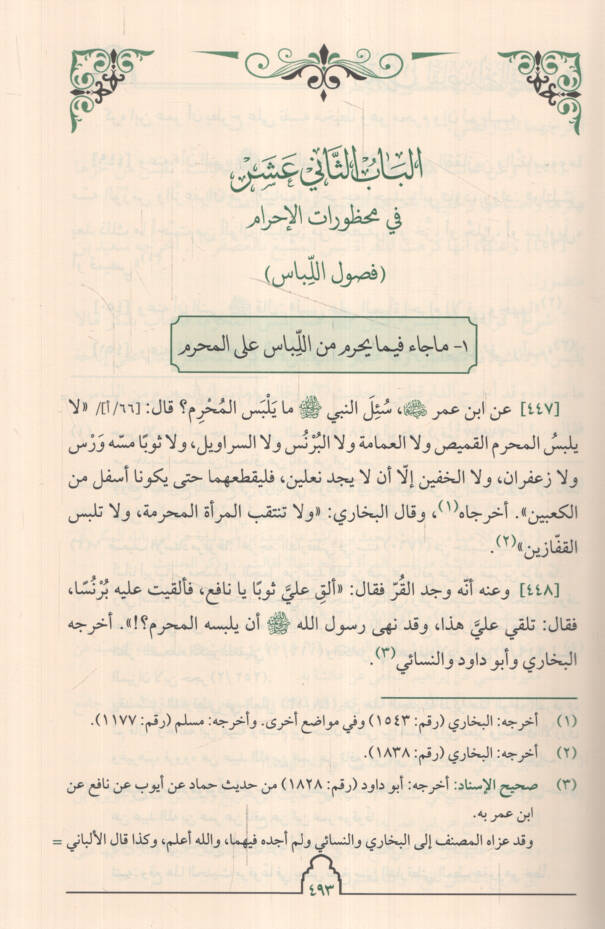 الباب الثَّاني عَشَر
في محظورات الإحرام
(فصول اللِّباس)
١- ماجاء فيما يحرم من اللِّباس على المحرم
[٤٤٧] عن ابن عمر ﵁، سُئِلَ النبي ﷺ ما يَلْبَس المُحْرِم؟ قال: [٦٦/أ]/ «لا
يلبسُ المحرم القميص ولا العمامة ولا البُرْنُس ولا السراويل، ولا ثوبًا مسّه وَرْس
ولا زعفران، ولا الخفين إلّا أن لا يجد نعلين، فليقطعهما حتى يكونا أسفل من
الكعبين». أخرجاه(١)، وقال البخاري: «ولا تنتقب المرأة المحرمة، ولا تلبس
القفّازين»(٢).
[٤٤٨] وعنه أنّه وجد القُرّ فقال: «ألقِ عليَّ ثوبًا يا نافع، فألقيت عليه بُرْنُسًا،
فقال: تلقي عليَّ هذا، وقد نهى رسول الله ﷺ أن يلبسه المحرم؟!». أخرجه
البخاري وأبو داود والنسائي(٣).
(١) أخرجه: البخاري (رقم: ١٥٤٣) وفي مواضع أخرى. وأخرجه: مسلم (رقم: ١١٧٧).
(٢) أخرجه: البخاري (رقم: ١٨٣٨).
(٣) صحيح الإسناد: أخرجه: أبو داود (رقم: ١٨٢٨) من حديث حماد عن أيوب عن نافع عن
ابن عمر به.
وقد عزاه المصنف إلى البخاري والنسائي ولم أجده فيهما، والله أعلم، وكذا قال الألباني =
٤٩٣